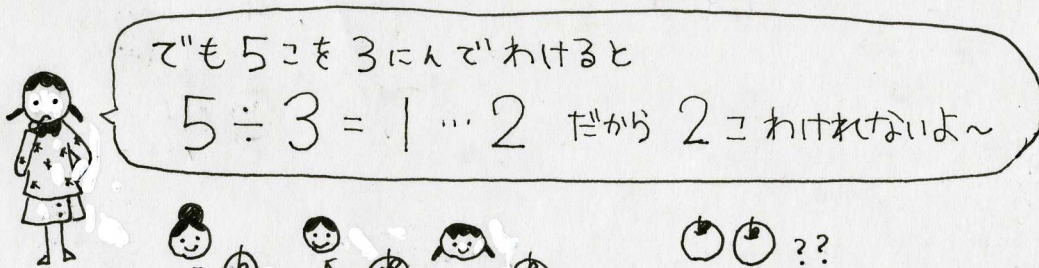 でも5こを3にんでわけると
5÷3=1…2 だから 2こ わけれないよ～
??